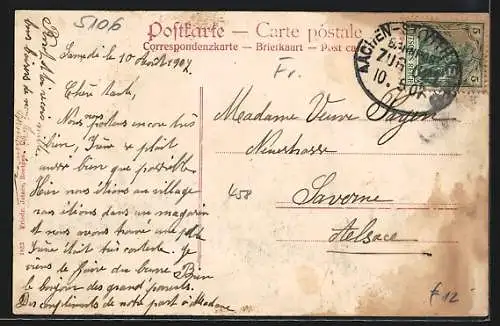 5106
Postkarte — Carte postale
Correspondenzkarte — Briefkaart — Post card
AACHEN-
BAHNPOST
ZUG
10. 8 07
5
5
Fr.
Samedi le 10 Août 1907
Chère tante,
Nous nous portons encore très
bien, Irène se plaît
aussi bien que possible
Hier nous étions au village
nous étions dans un magasin
et nous avons trouvé une
Irène était très contente. je
viens de faire du beurre Bien
le bonjour des grands parents.
Des compliments de notre part à Madame
Bons baisers de
Madame Veuve Sayer
Neustrasse
Saverne
Alsace
458
€ 12